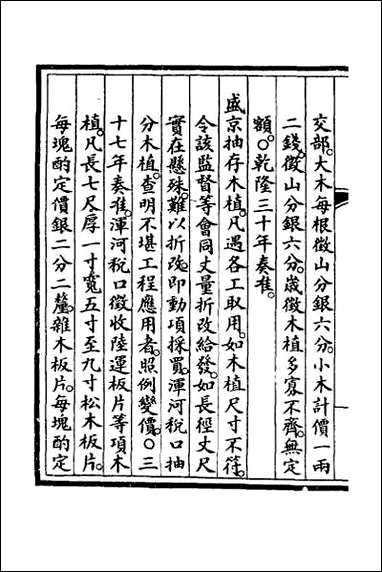 交部。大木每根徵山分銀六分。小木計價一兩
二錢。徵山分銀六分。歲徵木植多寡不齊。無定
額。○乾隆三十年奏准。
盛京抽存木植。凡遇各工取用。如木植尺寸不符。
令該監督等會同丈量折改給發。如長徑丈尺
實在懸殊。難以折改。即動項採買。渾河稅口抽
分木植。查明不堪工程應用者。照例變價。○三
十七年奏准。渾河稅口徵收陸運板片等項木
植。凡長七尺厚一寸寬五寸至九寸松木板片。
每塊酌定價銀二分二釐。雜木板片。每塊酌定